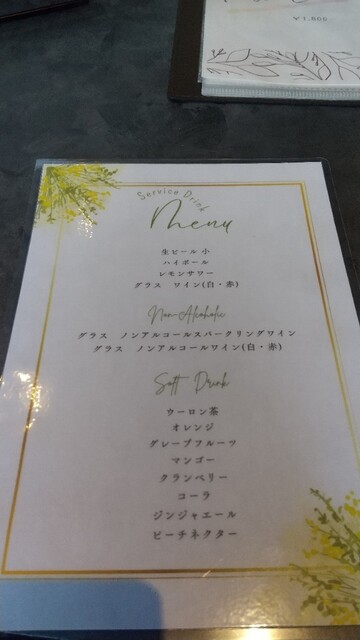 ¥1,600
Service Drink
Menu
生ビール 小
ハイボール
レモンサワー
グラス ワイン(白・赤)
Non-Alcoholic
グラス ノンアルコールスパークリングワイン
グラス ノンアルコールワイン(白・赤)
Soft Drink
ウーロン茶
オレンジ
グレープフルーツ
マンゴー
クランベリー
コーラ
ジンジャエール
ピーチネクター